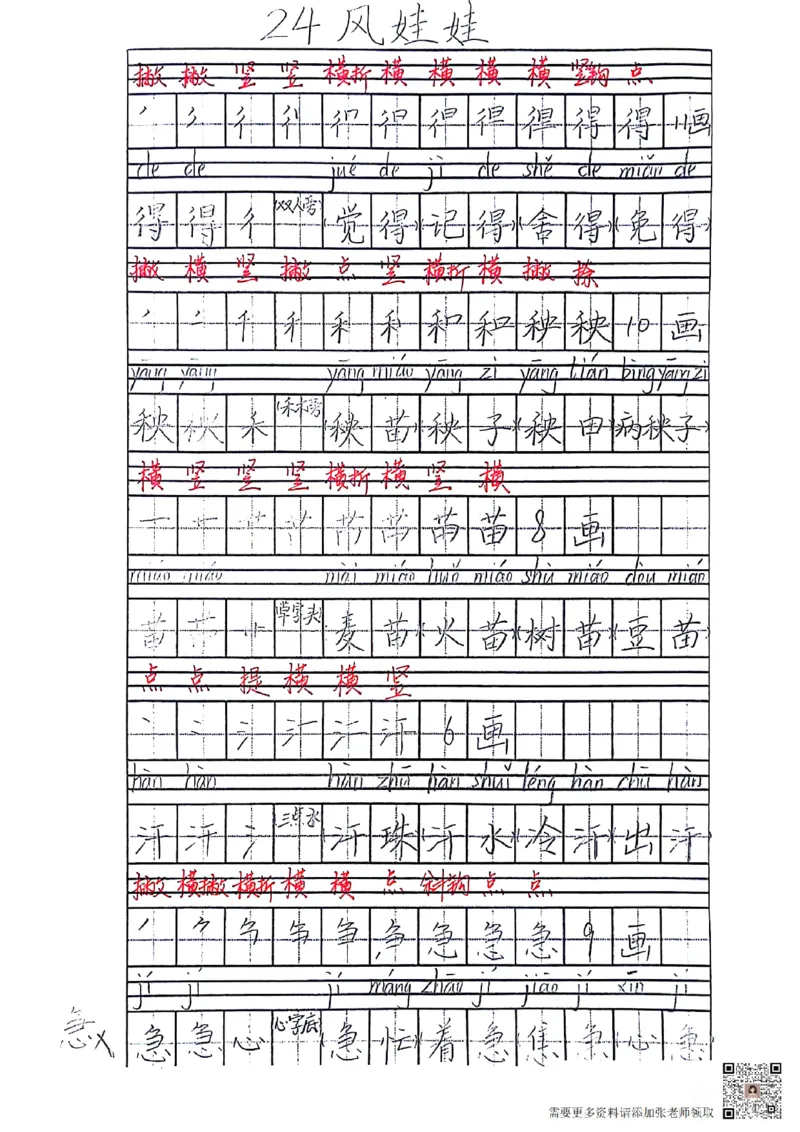 24 风娃娃
撇 撇 竖 竖 横折 横 横 横 横 竖钩 点
得 得 得 得 11画
de de jué de jì de shě de miǎn de
得 得 彳 (双人旁) (觉 得)(记 得)(舍 得)(免 得)
撇 横 竖 撇 点 竖 横折 横 撇 捺
秧 秧 10 画
yāng yāng yāng miáo yāng zi yāng tián bìng yāng zi
秧 秧 禾 (禾木旁) (秧 苗)(秧 子)(秧 田)(病秧子)
横 竖 竖 竖 横折 横 竖 横
苗 苗 8 画
miáo miáo mài miáo huǒ miáo shù miáo dòu miáo
苗 苗 艹 草字头 (麦 苗)(火 苗)(树 苗)(豆 苗)
点 点 提 横 横 竖
汗 6 画
hàn hàn hàn zhū hàn shuǐ lěng hàn chū hàn
汗 汗 氵 (三点水) (汗 珠)(汗 水)(冷 汗)(出 汗)
撇 横撇 横折 横 横 点 斜钩 点 点
急 急 9 画
jí jí jí máng zhāo jí jiāo jí xīn jí
急 急 急 心 心字底 (急 忙)(着 急)(焦 急)(心 急)
需要更多资料请添加张老师领取